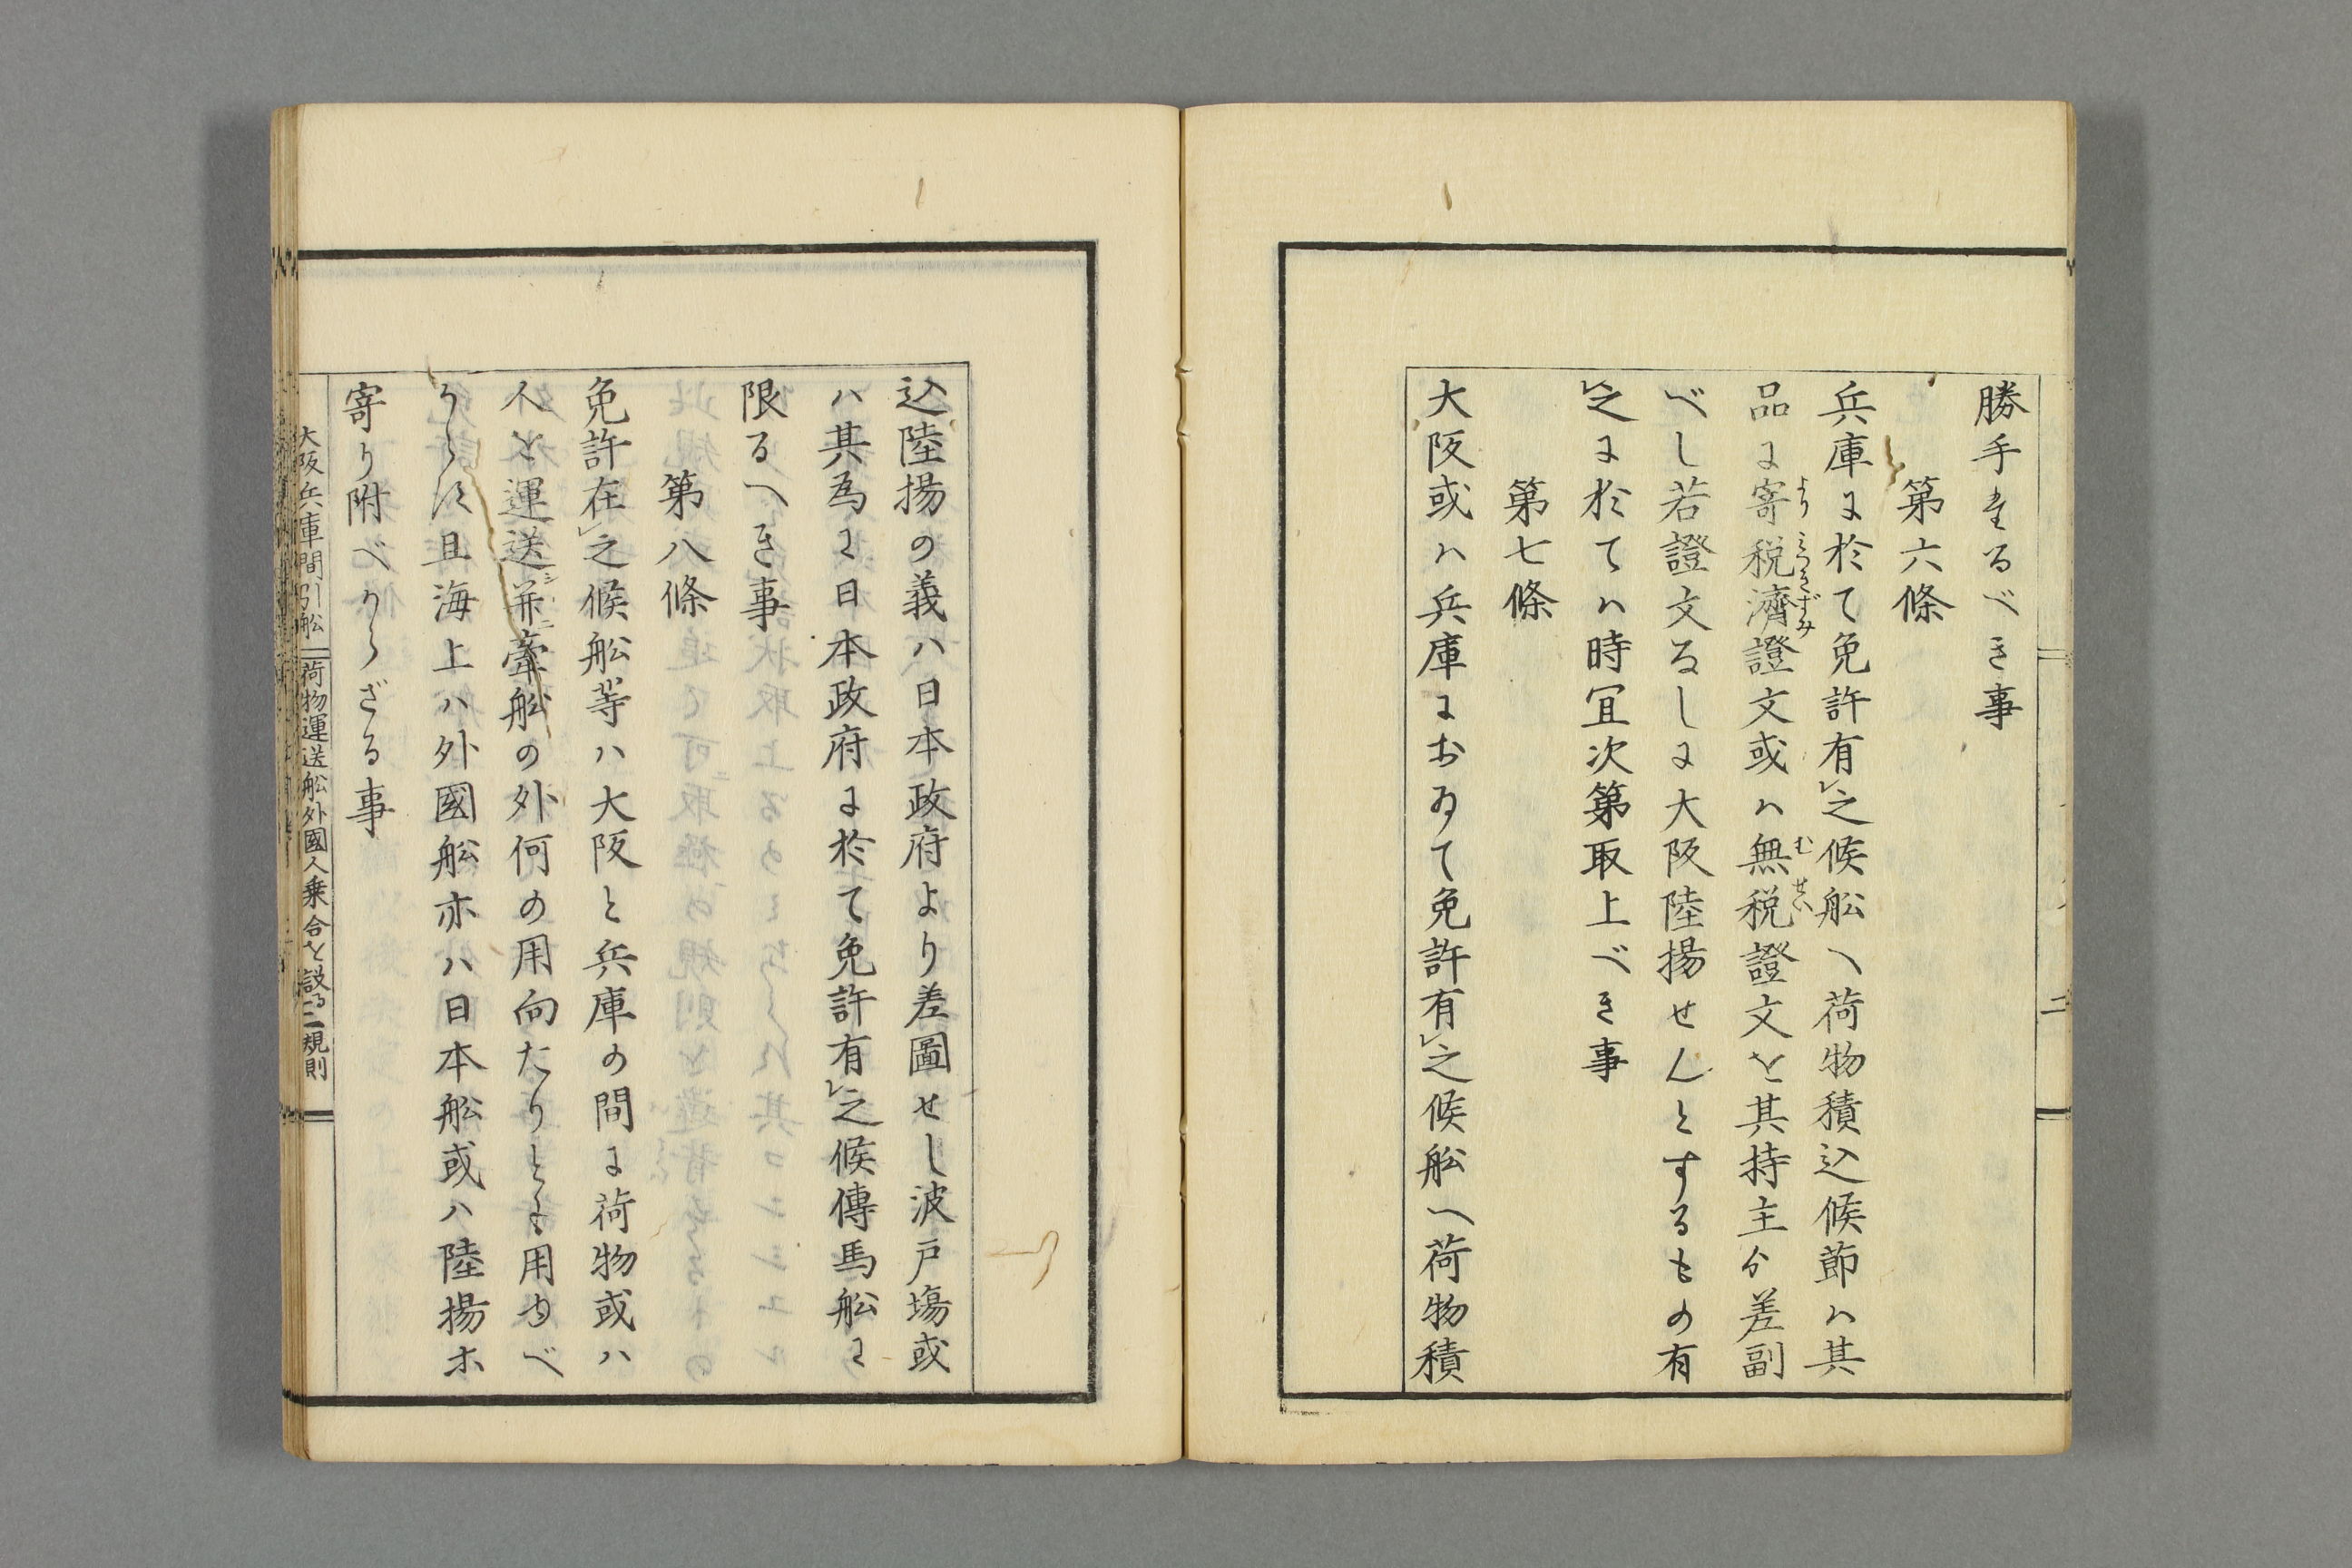 勝手たるべき事
第六條
兵庫に於て免許有㆑之候舩へ荷物積込候節ハ其
品に寄税濟證文或ハ無税證文を其持主ゟ差副
べし若證文なしに大阪陸揚せんとするもの有
㆑之に於てハ時冝次第取上べき事
第七條
大阪或ハ兵庫におゐて免許有㆑之候舩へ荷物積
込陸揚の義ハ日本政府より差圖せし波戸塲或
ハ其為に日本政府に於て免許有㆑之候傳馬舩に
限るへき事
第八條
免許在㆑之候舩等ハ大阪と兵庫の間に荷物或ハ
人を運送并牽舩の外何の用向たりとも用ゆべ
からす且海上ハ外國舩亦ハ日本舩或ハ陸揚ホ
寄り附べからざる事
大阪兵庫間引舩 荷物運送舩外國人乗合を設る規則
二